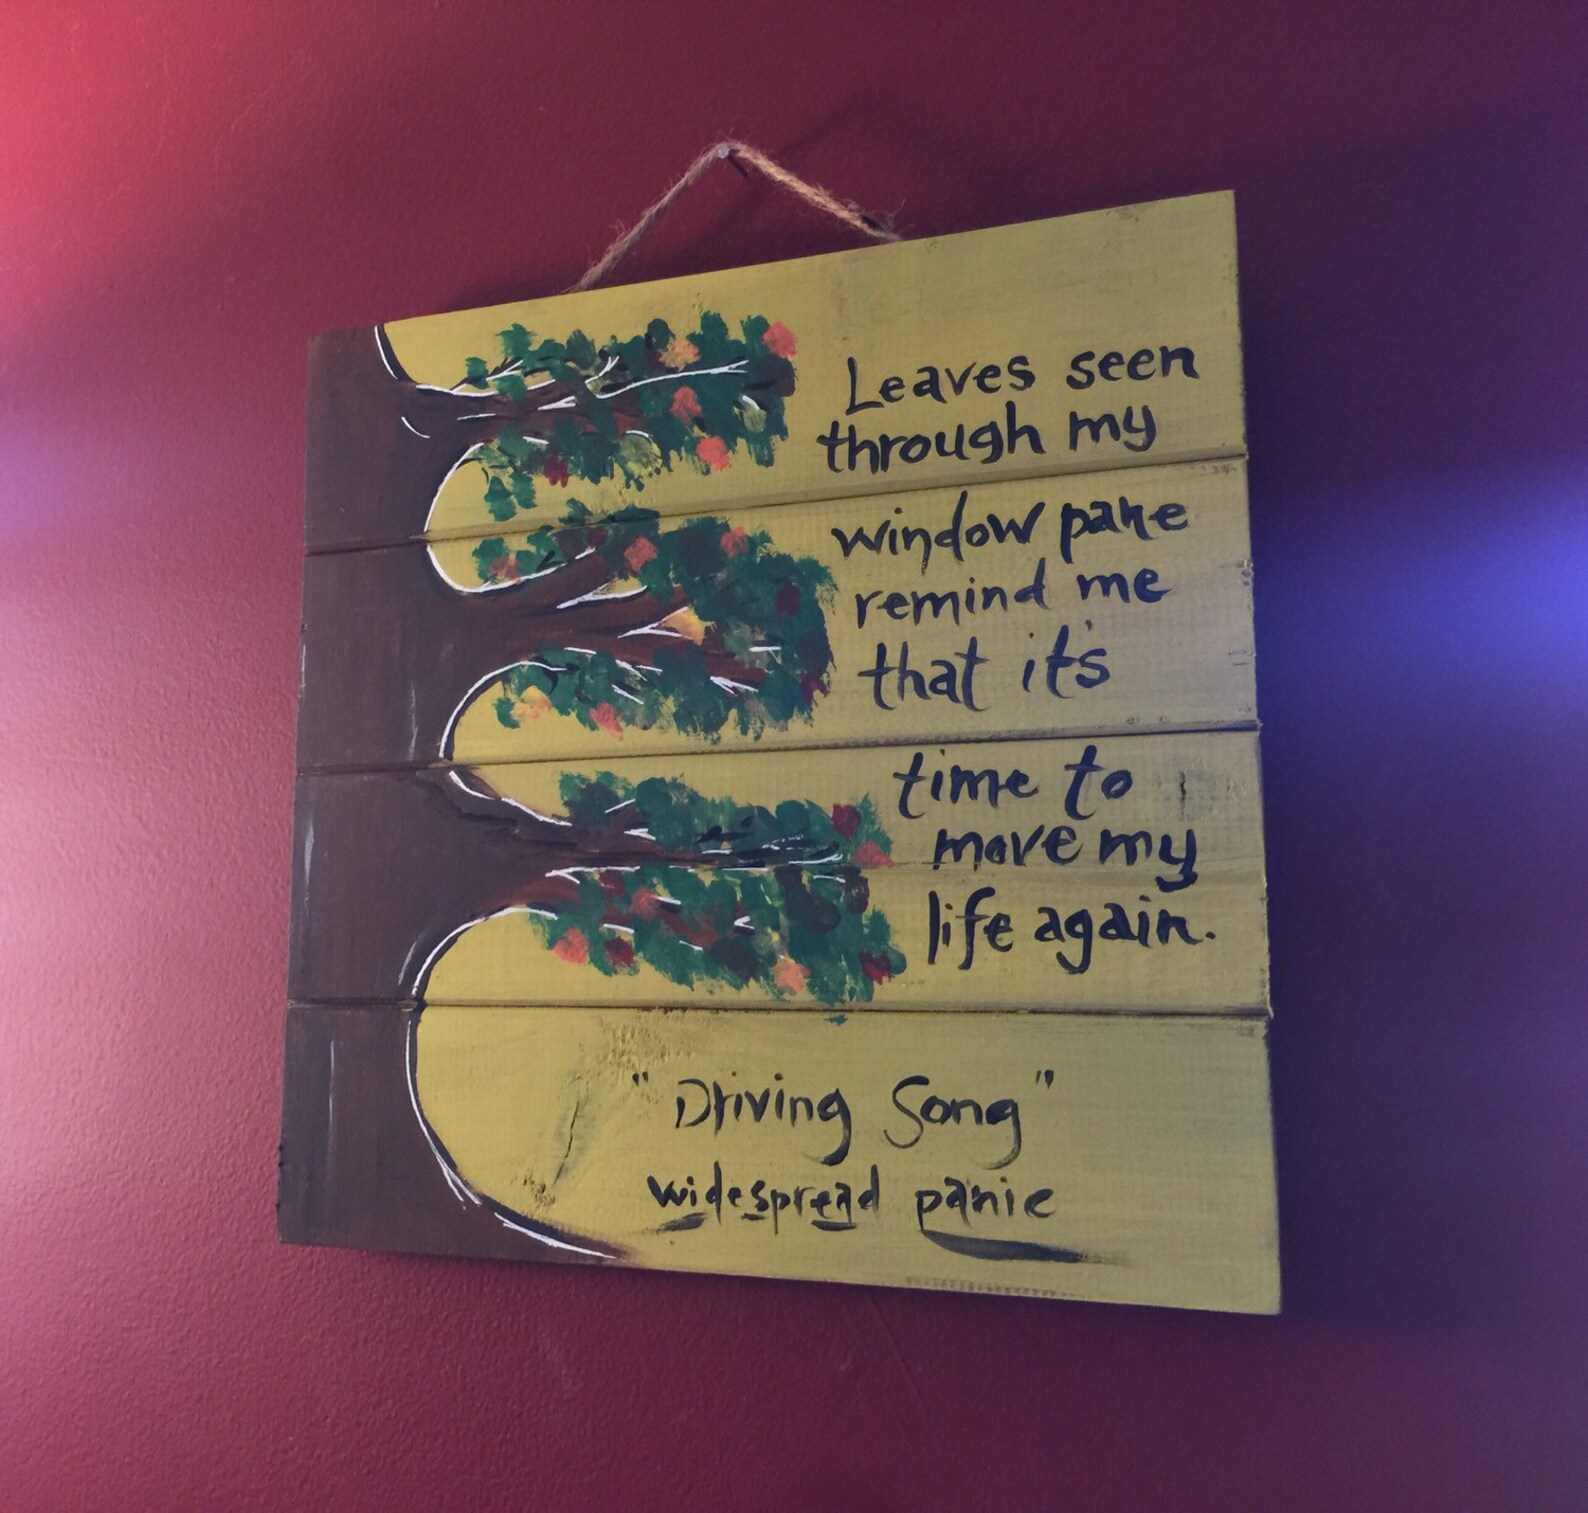 Leaves seen
through my
window pane
remind me
that it's
time to
move my
life again.
"Driving Song"
widespread panic